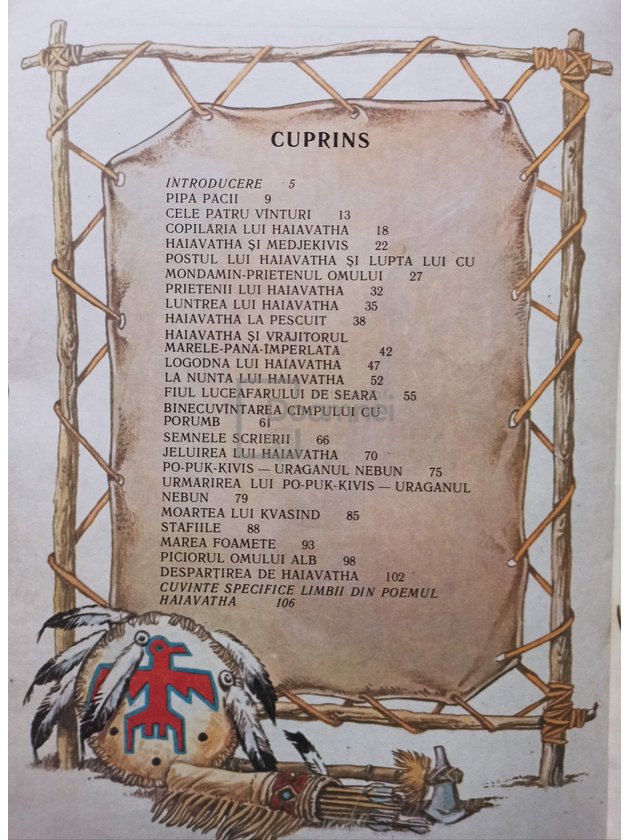 CUPRINS
INTRODUCERE 5
PIPA PACII 9
CELE PATRU VÎNTURI 13
COPILARIA LUI HAIAVATHA 18
HAIAVATHA ŞI MEDJEKIVIS 22
POSTUL LUI HAIAVATHA ŞI LUPTA LUI CU
MONDAMIN-PRIETENUL OMULUI 27
PRIETENII LUI HAIAVATHA 32
LUNTREA LUI HAIAVATHA 35
HAIAVATHA LA PESCUIT 38
HAIAVATHA ŞI VRĂJITORUL
MARELE-PANĂ-ÎMPERLATĂ 42
LOGODNA LUI HAIAVATHA 47
LA NUNTA LUI HAIAVATHA 52
FIUL LUCEAFARULUI DE SEARĂ 55
BINECUVÎNTAREA CÎMPULUI CU
PORUMB 61
SEMNELE SCRIERII 66
JELUIREA LUI HAIAVATHA 70
PO-PUK-KIVIS — URAGANUL NEBUN 75
URMARIREA LUI PO-PUK-KIVIS — URAGANUL
NEBUN 79
MOARTEA LUI KVASIND 85
STAFIILE 88
MAREA FOAMETE 93
PICIORUL OMULUI ALB 98
DESPARŢIREA DE HAIAVATHA 102
CUVINTE SPECIFICE LIMBII DIN POEMUL
HAIAVATHA 106